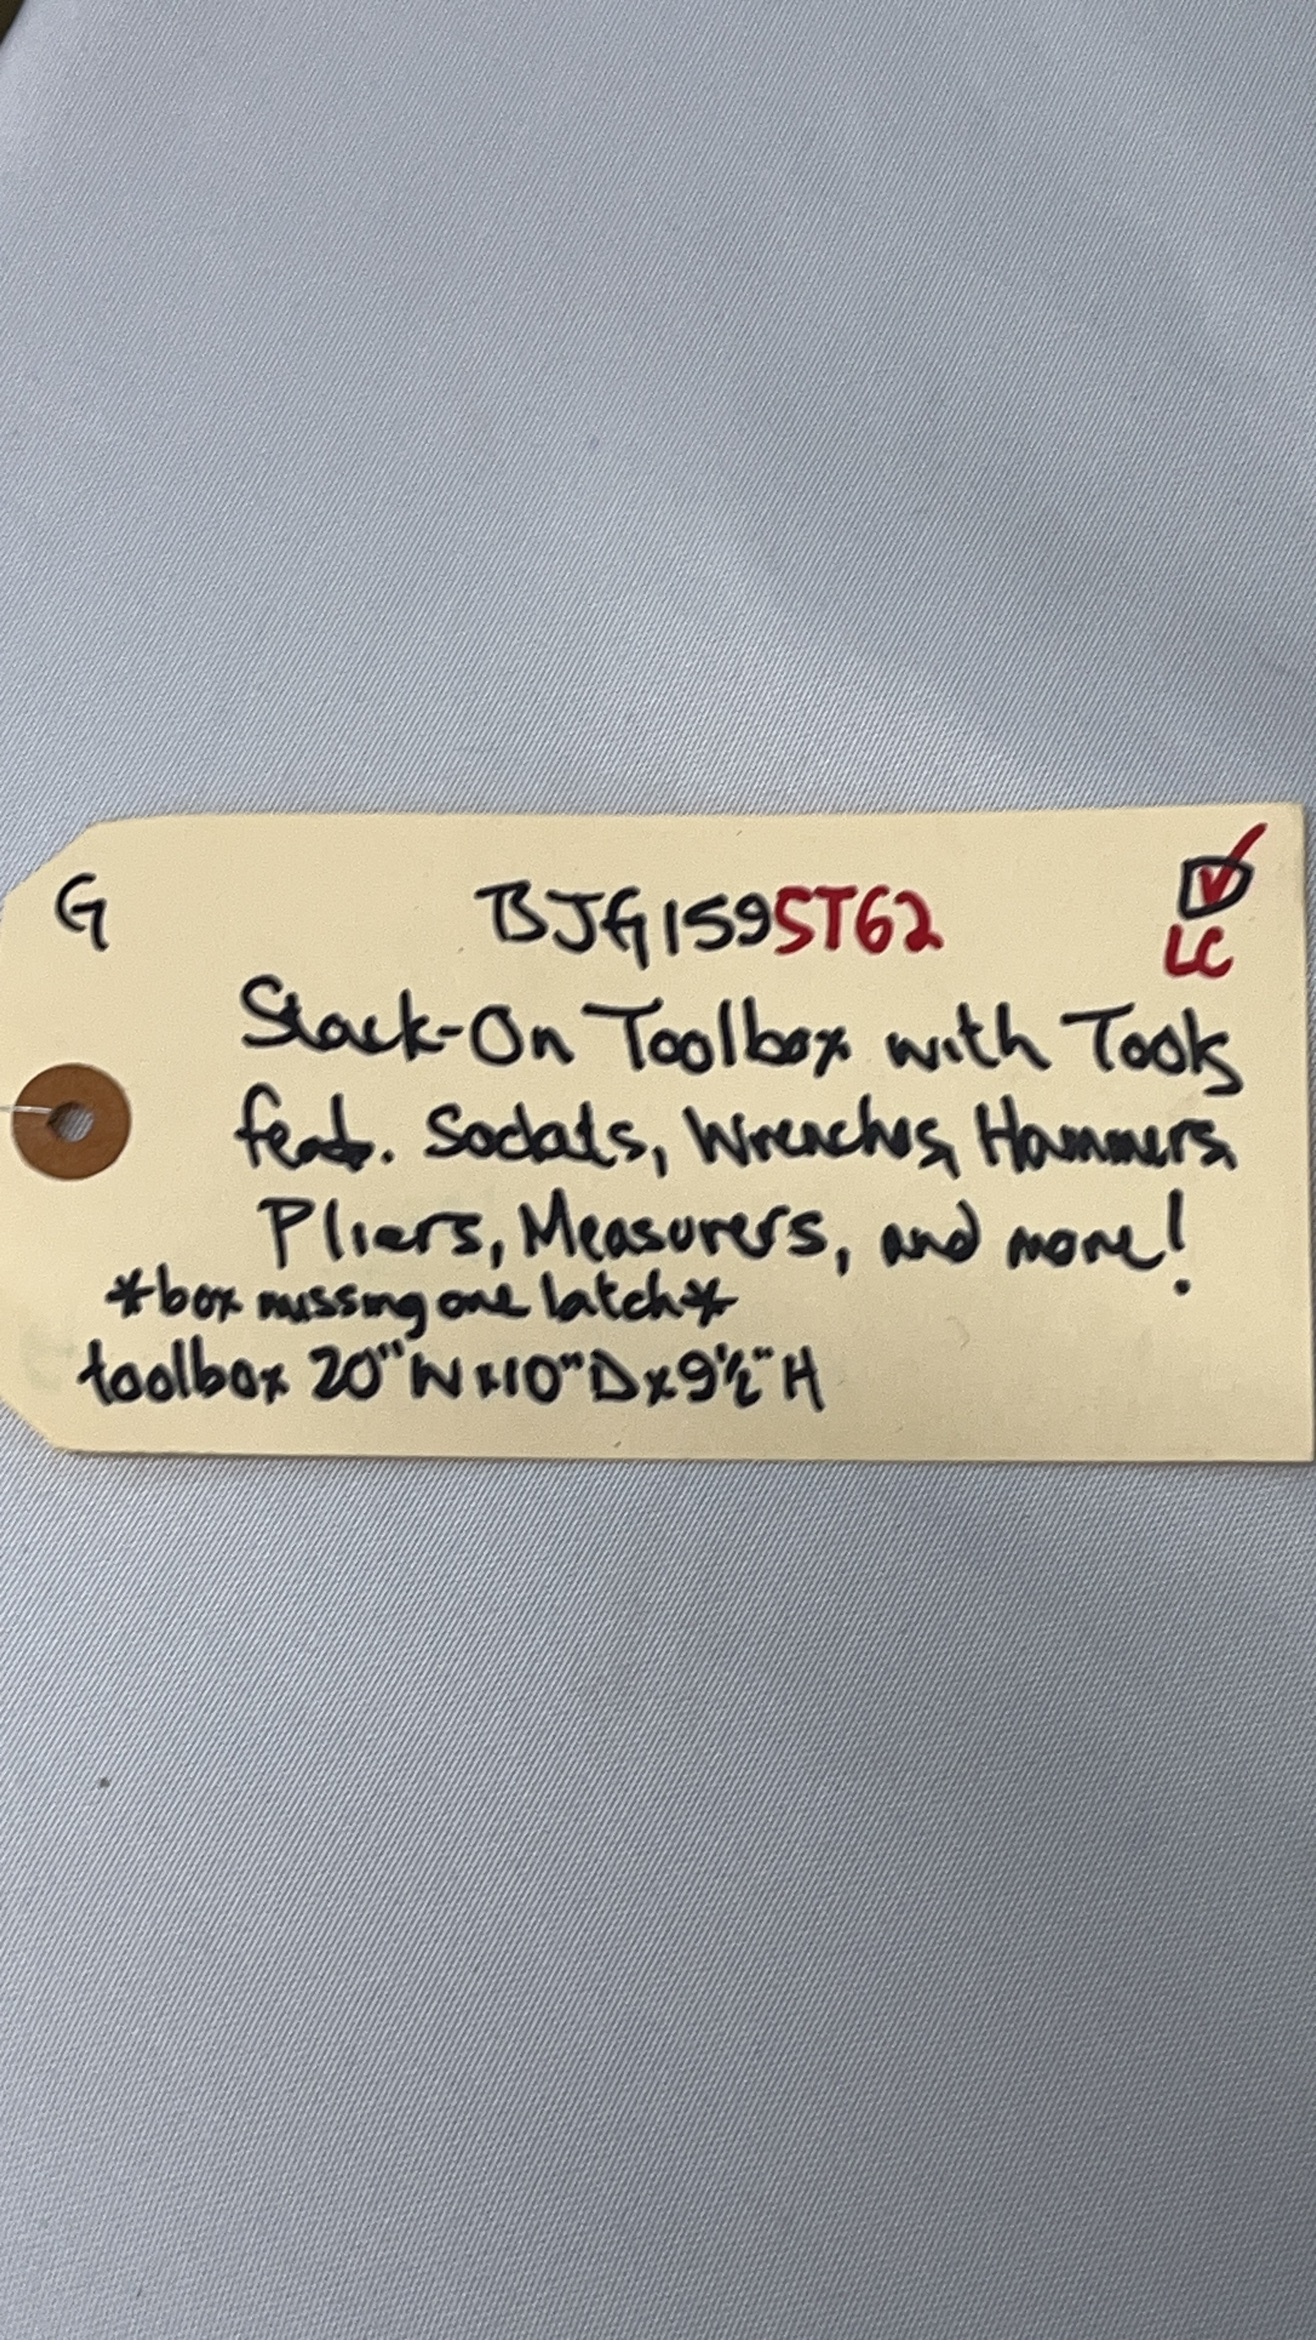 G BJG1595T62 ☑
LC
Stack-On Toolbox with Tools
feat. Sockets, Wrenches, Hammers,
Pliers, Measurers, and more!
*box missing one latch*
toolbox 20"W x 10"D x 9½"H